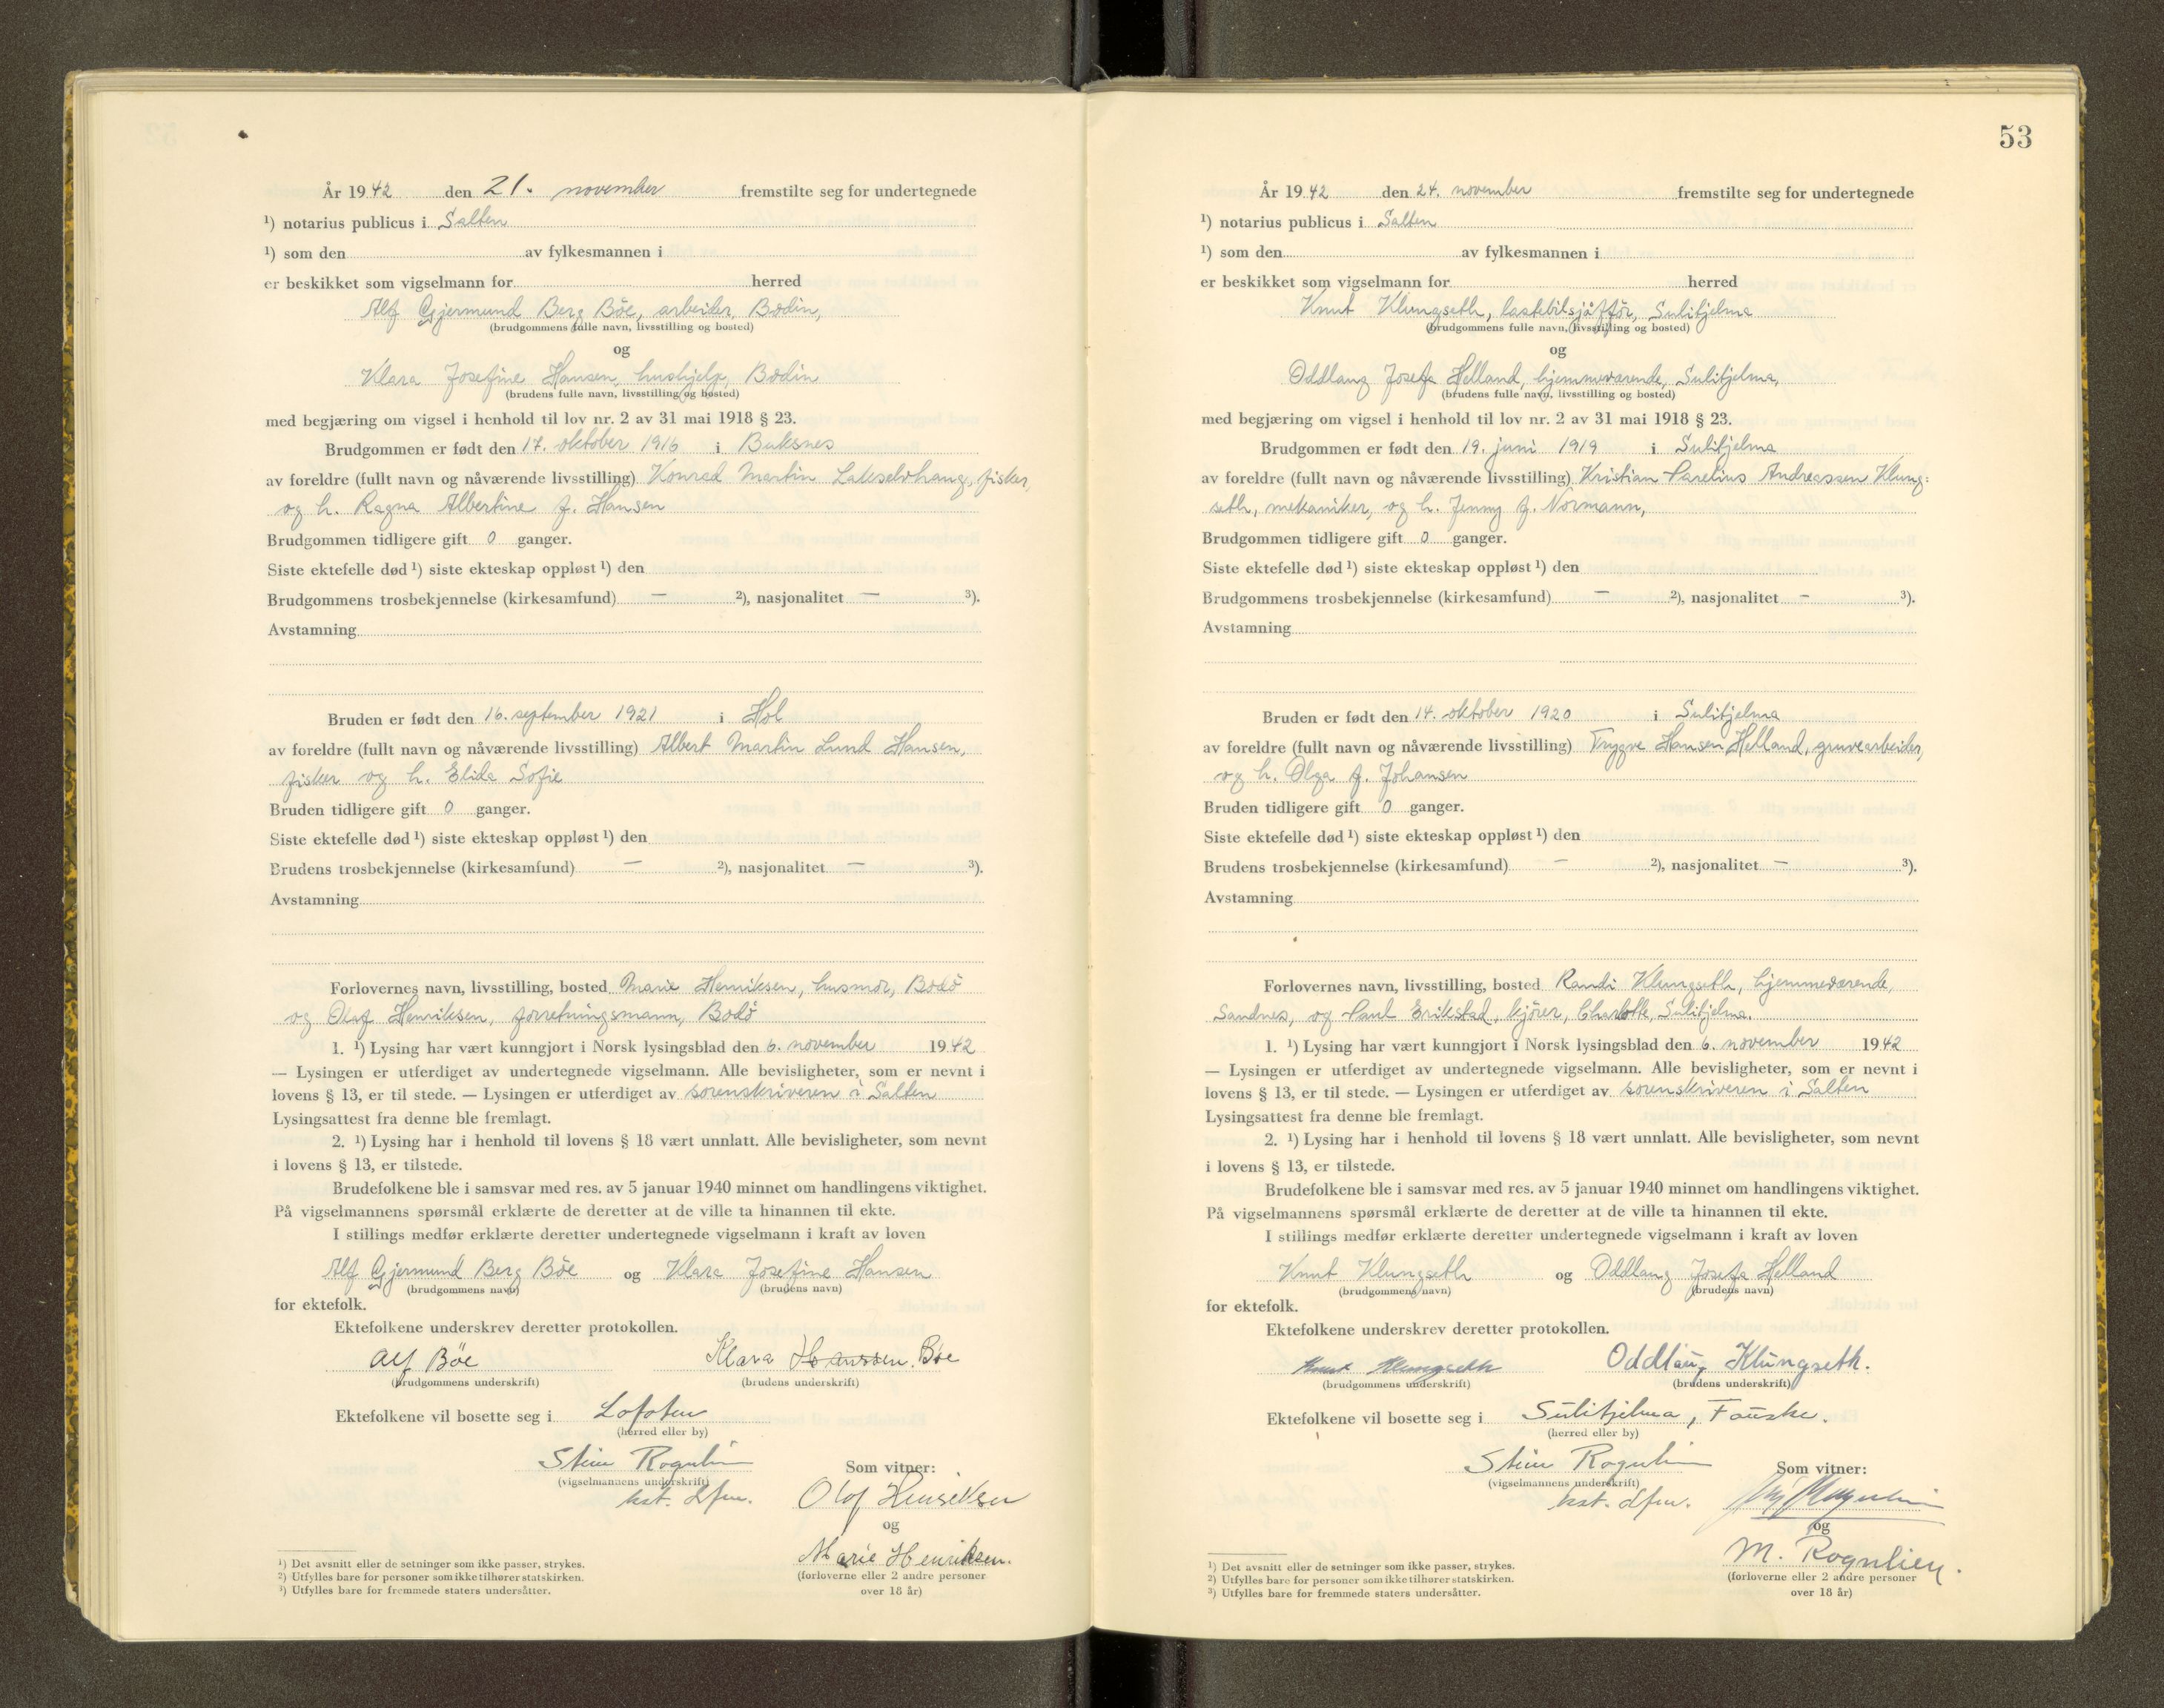 År 1942 den 21. november fremstilte seg for undertegnede
¹) notarius publicus i Salten
¹) som den av fylkesmannen i
er beskikket som vigselmann for herred
Alf Gjermund Berg Böe, arbeider, Bodin,
(brudgommens fulle navn, livsstilling og bosted)
og
Klara Josefine Hansen, hushjelp, Bodin
(brudens fulle navn, livsstilling og bosted)
med begjæring om vigsel i henhold til lov nr. 2 av 31 mai 1918 § 23.
Brudgommen er født den 17. oktober 1916 i Buksnes
av foreldre (fullt navn og nåværende livsstilling) Konrad Martin Lakselvhaug, fisker,
og h. Ragna Albertine f. Hansen
Brudgommen tidligere gift 0 ganger.
Siste ektefelle død ¹) siste ekteskap oppløst ¹) den
Brudgommens trosbekjennelse (kirkesamfund) — ²), nasjonalitet — ³).
Avstamning
Bruden er født den 16. september 1921 i Hol
av foreldre (fullt navn og nåværende livsstilling) Albert Martin Lund Hansen,
fisker og h. Elida Sofie
Bruden tidligere gift 0 ganger.
Siste ektefelle død ¹) siste ekteskap oppløst ¹) den
Brudens trosbekjennelse (kirkesamfund) — ²), nasjonalitet — ³).
Avstamning
Forlovernes navn, livsstilling, bosted Marie Henriksen, husmor, Bodö
og Olaf Henriksen, forretningsmann, Bodö
1. ¹) Lysing har vært kunngjort i Norsk lysingsblad den 6. november 1942
— Lysingen er utferdiget av undertegnede vigselmann. Alle bevisligheter, som er nevnt i
lovens § 13, er til stede. — Lysingen er utferdiget av sorenskriveren i Salten
Lysingsattest fra denne ble fremlagt.
2. ¹) Lysing har i henhold til lovens § 18 vært unnlatt. Alle bevisligheter, som nevnt
i lovens § 13, er tilstede.
Brudefolkene ble i samsvar med res. av 5 januar 1940 minnet om handlingens viktighet.
På vigselmannens spørsmål erklærte de deretter at de ville ta hinannen til ekte.
I stillings medfør erklærte deretter undertegnede vigselmann i kraft av loven
Alf Gjermund Berg Böe og Klara Josefine Hansen
(brudgommens navn) (brudens navn)
for ektefolk.
Ektefolkene underskrev deretter protokollen.
Alf Böe Klara Hanssen. Böe
(brudgommens underskrift) (brudens underskrift)
Ektefolkene vil bosette seg i Lofoten
(herred eller by)
Stein Rognlien
(vigselmannens underskrift) Som vitner:
kst. dfm. Olaf Henriksen
og
Marie Henriksen.
(forloverne eller 2 andre personer
over 18 år)
¹) Det avsnitt eller de setninger som ikke passer, strykes.
²) Utfylles bare for personer som ikke tilhører statskirken.
³) Utfylles bare for fremmede staters undersåtter.
53
År 1942 den 24. november fremstilte seg for undertegnede
¹) notarius publicus i Salten
¹) som den av fylkesmannen i
er beskikket som vigselmann for herred
Knut Klungseth, lastebilsjåfför, Sulitjelma
(brudgommens fulle navn, livsstilling og bosted)
og
Oddlaug Josefa Helland, hjemmeværende, Sulitjelma,
(brudens fulle navn, livsstilling og bosted)
med begjæring om vigsel i henhold til lov nr. 2 av 31 mai 1918 § 23.
Brudgommen er født den 19. juni 1919 i Sulitjelma
av foreldre (fullt navn og nåværende livsstilling) Kristian Parelius Andreassen Klung-
seth, mekaniker, og h. Jenny f. Normann,
Brudgommen tidligere gift 0 ganger.
Siste ektefelle død ¹) siste ekteskap oppløst ¹) den
Brudgommens trosbekjennelse (kirkesamfund) — ²), nasjonalitet — ³).
Avstamning
Bruden er født den 14. oktober 1920 i Sulitjelma
av foreldre (fullt navn og nåværende livsstilling) Trygve Hansen Helland, gruvearbeider,
og h. Olga f. Johansen
Bruden tidligere gift 0 ganger.
Siste ektefelle død ¹) siste ekteskap oppløst ¹) den
Brudens trosbekjennelse (kirkesamfund) — ²), nasjonalitet — ³).
Avstamning
Forlovernes navn, livsstilling, bosted Randi Klungseth, hjemmeværende,
Sandnes, og Paul Erikstad, kjörer, Charlotte, Sulitjelma.
1. ¹) Lysing har vært kunngjort i Norsk lysingsblad den 6. november 1942
— Lysingen er utferdiget av undertegnede vigselmann. Alle bevisligheter, som er nevnt i
lovens § 13, er til stede. — Lysingen er utferdiget av sorenskriveren i Salten
Lysingsattest fra denne ble fremlagt.
2. ¹) Lysing har i henhold til lovens § 18 vært unnlatt. Alle bevisligheter, som nevnt
i lovens § 13, er tilstede.
Brudefolkene ble i samsvar med res. av 5 januar 1940 minnet om handlingens viktighet.
På vigselmannens spørsmål erklærte de deretter at de ville ta hinannen til ekte.
I stillings medfør erklærte deretter undertegnede vigselmann i kraft av loven
Knut Klungseth og Oddlaug Josefa Helland
(brudgommens navn) (brudens navn)
for ektefolk.
Ektefolkene underskrev deretter protokollen.
Knut Klungseth Oddlaug Klungseth.
(brudgommens underskrift) (brudens underskrift)
Ektefolkene vil bosette seg i Sulitjelma, Fauske.
(herred eller by)
Stein Rognlien
(vigselmannens underskrift) Som vitner:
kst. dfm.
og
M. Rognlien.
(forloverne eller 2 andre personer
over 18 år)
¹) Det avsnitt eller de setninger som ikke passer, strykes.
²) Utfylles bare for personer som ikke tilhører statskirken.
³) Utfylles bare for fremmede staters undersåtter.